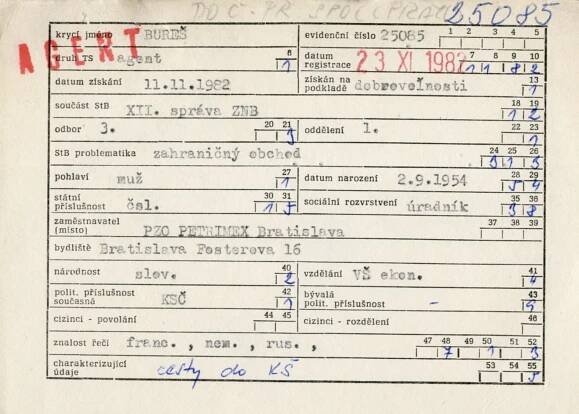 DOČ. PR. SPOL. PRAC. 25085
AGENT
krycí jméno BUREŠ evidenční číslo 25085 1 2 3 4 5
druh TS agent 6 1 datum registrace 23 XI. 1982 7 8 9 10 1 1 8 2
datum získání 11.11.1982 získán na podkladě dobrovoľnosti 13 1
součást StB XII. správa ZNB 18 19 1 2
odbor 3. 20 21 3 oddělení 1. 22 23 1
StB problematika zahraničný obchod 24 25 26 3 1 3
pohlaví muž 27 1 datum narození 2.9.1954 28 29 5 4
státní příslušnost čsl. 30 31 1 5 sociální rozvrstvení úradník 35 36 3 8
zaměstnavatel (místo) PZO PETRIMEX Bratislava 37 38 39
bydliště Bratislava Fosterova 16
národnost slov. 40 2 vzdělání VŠ ekon. 41 4
polit. příslušnost současná KSČ 42 1 bývalá polit. příslušnost - 43 5
cizinci - povolání 44 45 cizinci - rozdělení 46
znalost řečí franc., nem., rus., 47 48 50 51 52 7 1 3
charakterizující údaje cesty do KŠ 53 54 55 5